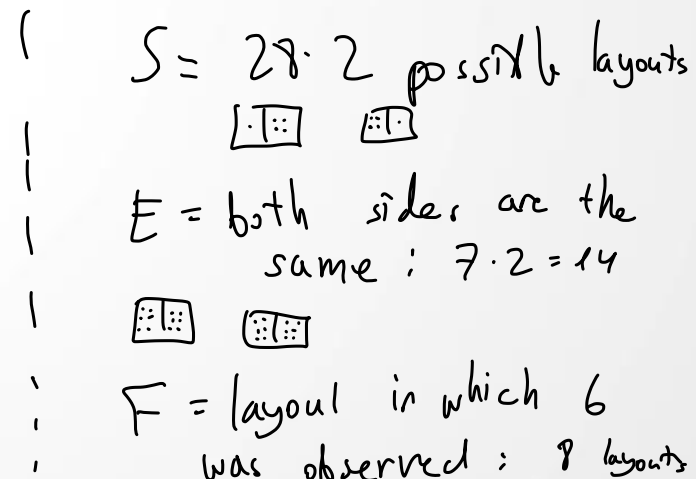 S = 28·2 possible layouts
E = both sides are the
same : 7·2 = 14
F = layout in which 6
was observed : 8 layouts